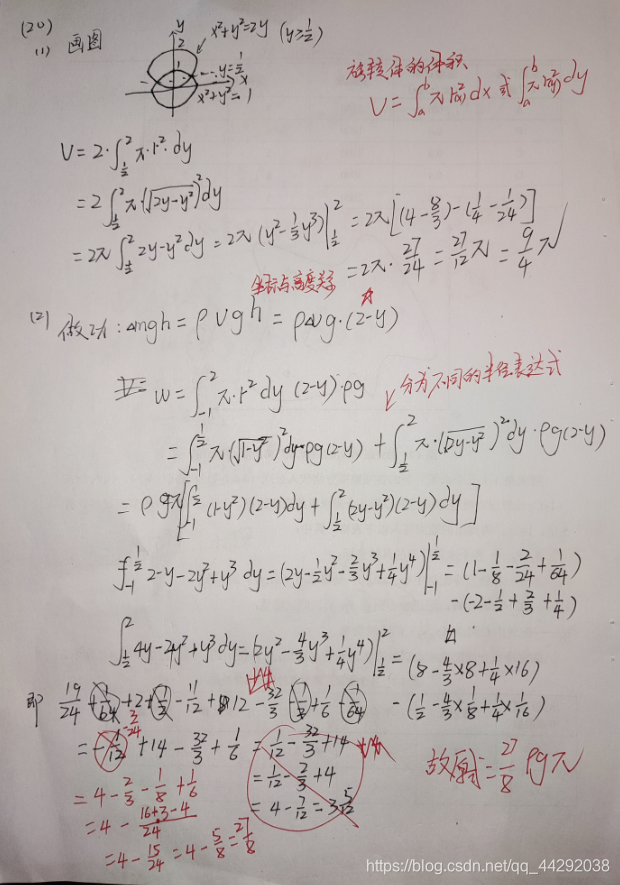 (20)
(1) 画图
y
2
x²+y²=2y (y≥1/2)
y=1/2
x
x²+y²=1
旋转体的体积
V=∫_a^b π r(x)² dx 或 ∫_a^b π r(y)² dy
V=2·∫_{1/2}^2 π·r²·dy
=2∫_{1/2}^2 π·(√(2y-y²))² dy
=2π∫_{1/2}^2 2y-y² dy=2π(y²-1/3y³)|_{1/2}^2=2π[(4-8/3)-(1/4-1/24)]
=2π·27/24=27/12π=9/4π
坐标与高度关系
(2) 做功:△mgh=ρVgh=ρ△Vg·(2-y)
W=∫_{-1}^2 π·r² dy (2-y)·ρg
分为不同的半径表达式
=∫_{-1}^{1/2} π·(√(1-y²))² dy·ρg(2-y)+∫_{1/2}^2 π·(√(2y-y²))² dy·ρg(2-y)
=ρgπ[∫_{-1}^{1/2}(1-y²)(2-y)dy+∫_{1/2}^2(2y-y²)(2-y)dy]
∫_{-1}^{1/2} 2-y-2y²+y³ dy=(2y-1/2y²-2/3y³+1/4y⁴)|_{-1}^{1/2}=(1-1/8-2/24+1/64)
-(-2-1/2+2/3+1/4)
∫_{1/2}^2 4y-4y²+y³ dy=(2y²-4/3y³+1/4y⁴)|_{1/2}^2=(8-4/3×8+1/4×16)
-(1/2-4/3×1/8+1/4×1/16)
即 19/24+1/64+2+1/2-11/12+12-32/3-1/2+1/6-1/64
=-1/12+14-32/3+1/6=1/12-32/3+14
=4-2/3-1/8+1/6
=1/12-2/3+4
=4-(16+3-4)/24
=4-7/12=3 5/12
=4-15/24=4-5/8=27/8
故原式=27/8ρgπ
https://blog.csdn.net/qq_44292038